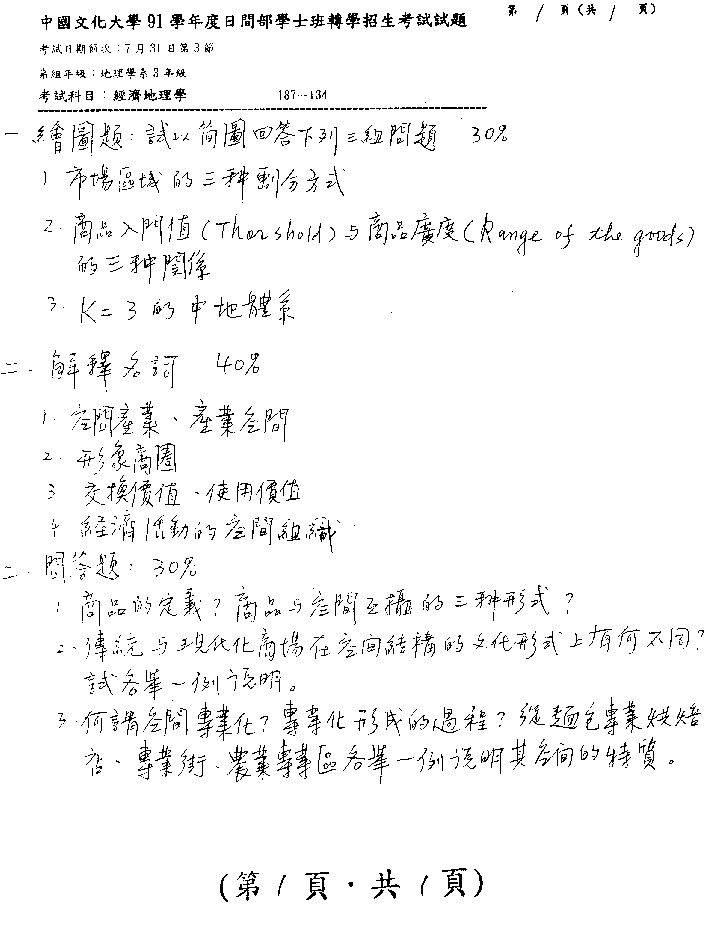 中國文化大學 91 學年度日間部學士班轉學招生考試試題 第 1 頁(共 1 頁)
考試日期節次:7月31日第3節
系組年級:地理學系3年級
考試科目:經濟地理學 187--134
一 繪圖題:試以简圖回答下列三組問題 30%
1 市場區域的三种劃分方式
2. 商品入門值(Thorshold)与商品廣度(Range of the goods)
的三种関係
3. K=3 的中地體系
二. 解釋名詞 40%
1. 空間產業、產業空間
2. 形象商圈
3 交換價值、使用價值
4 経濟活動的空間組織
三. 問答題: 30%
1 商品的定義?商品与空間互攝的三种形式?
2. 傳統与現代化商場在空间結構的文化形式上有何不同?
試各舉一例說明。
3. 何謂空間專業化?專業化形成的過程?從麵包專業烘焙
店、專業街、農業專業區各舉一例說明其空间的特質。
(第 1 頁·共 1 頁)